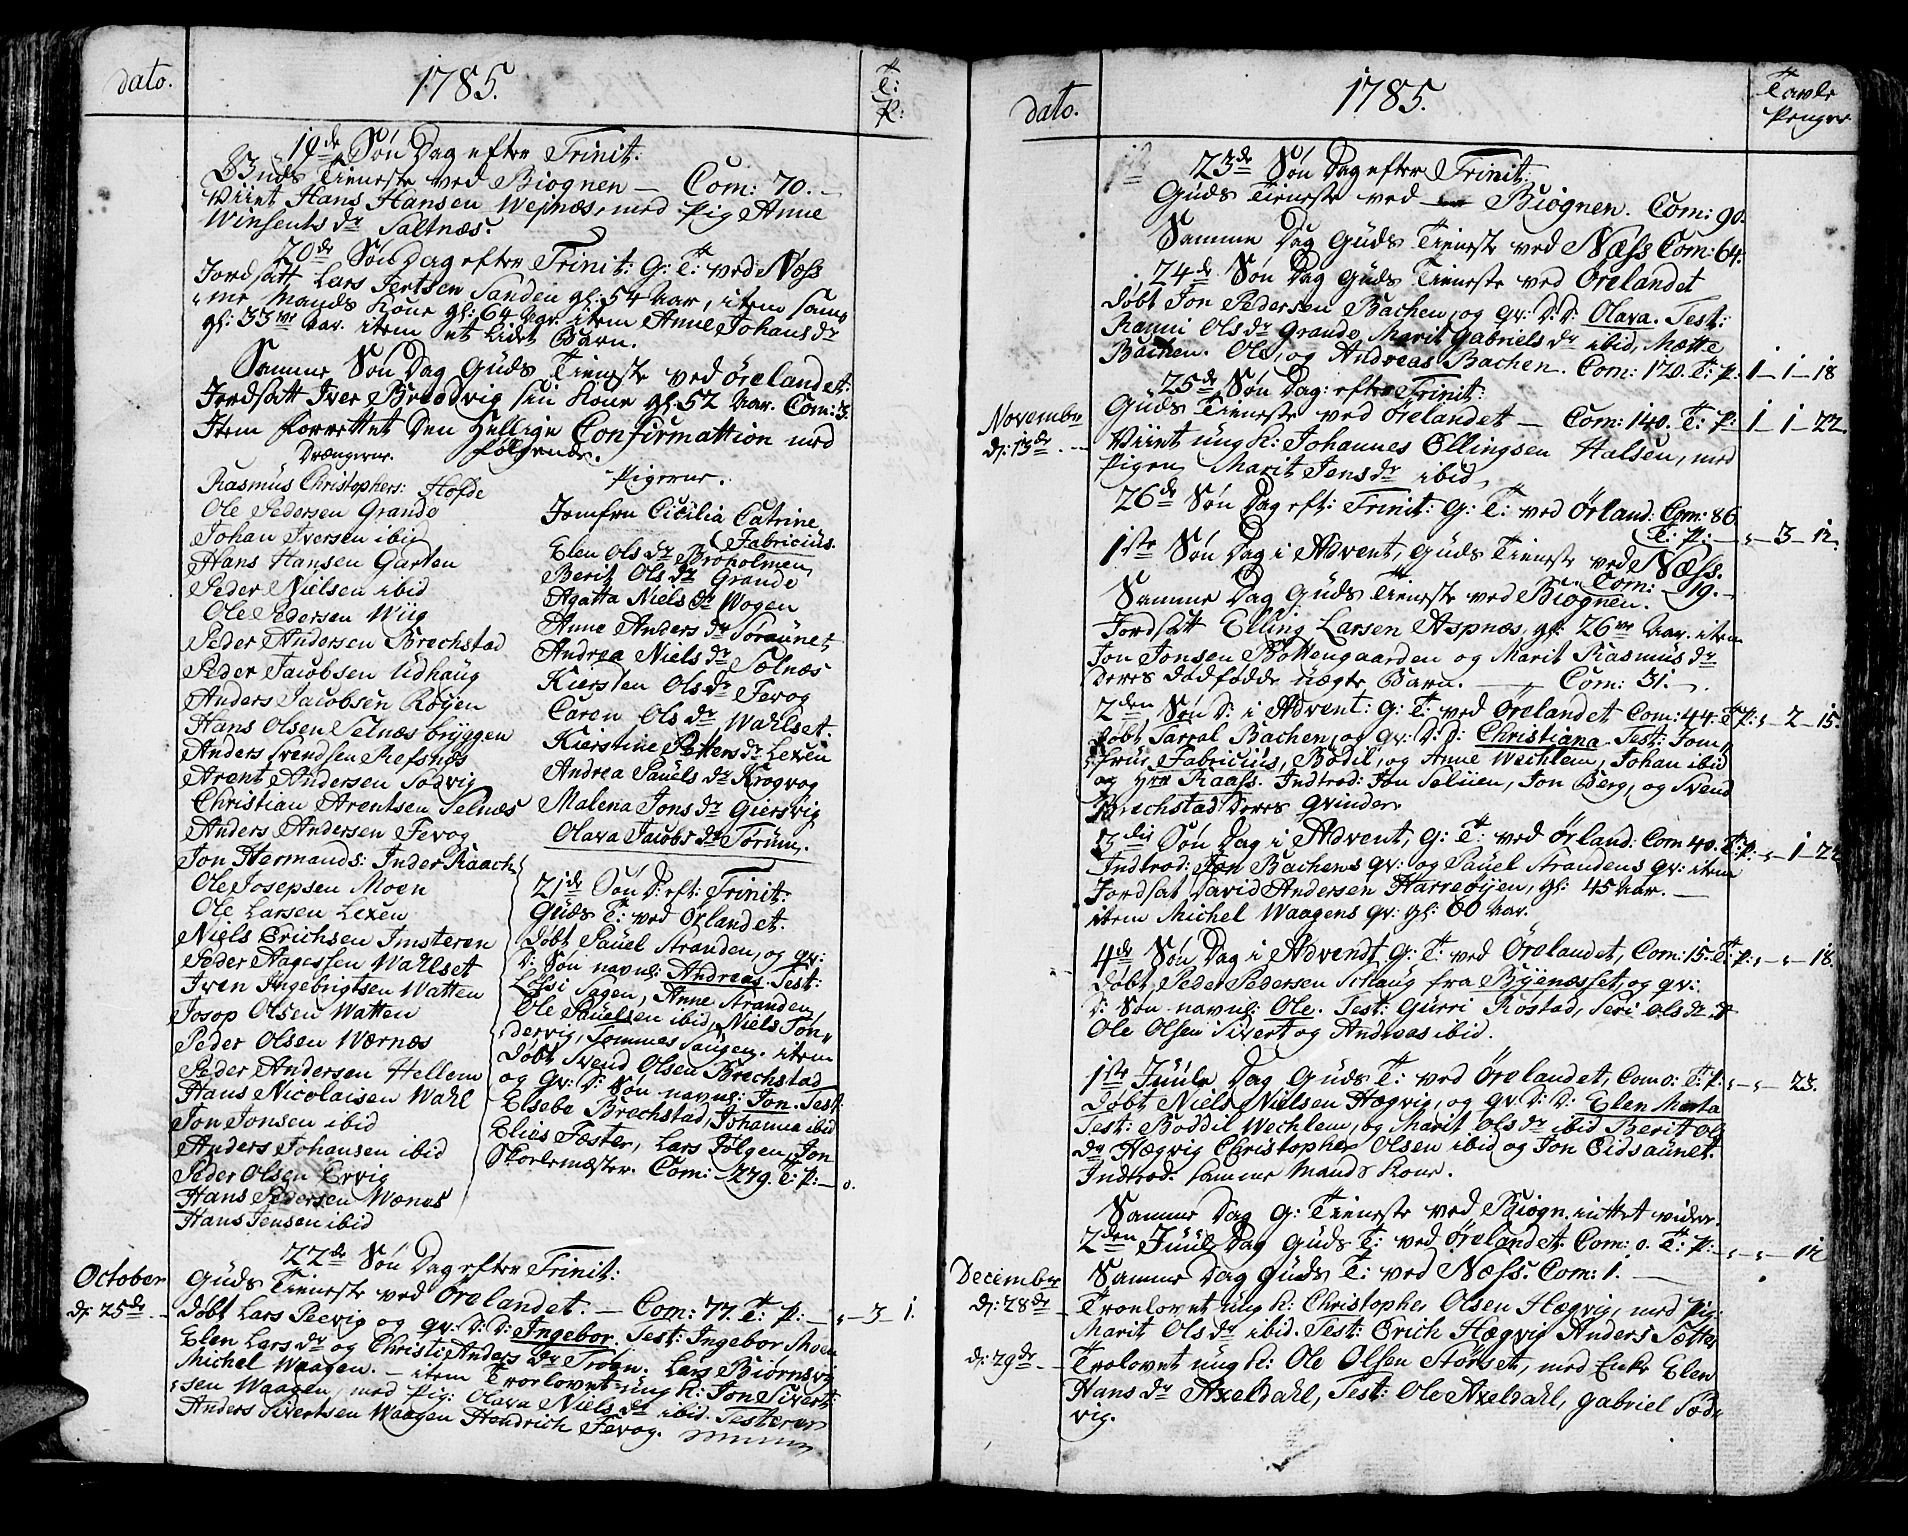 dato.
1785.
T:
P:
19de Søn Dag efter Trinit.
Guds Tieneste ved Biognen — Com: 70. —
Viiet Hans Hansen Wejnæs, med Pig Anne
Winsents dr Saltnæs.
20de Søn Dag efter Trinit: G: T: ved Næss
Jordsatt Lars Jertsen Sanden gl: 54 Aar, item sam„
„me Mands Kone gl: 64 Aar. item Anne Johans dr
gl: 33 ve Aar. item et lidet Barn.
Samme Søn Dag Guds Tieneste ved Ørelandet:
Jordsatt Iver Breedvig sin Kone gl. 52 Aar. Com: 3.
Item forrettet Den Hellige Confirmattion med
følgende.
Drængerne.
Rasmus Christophers: Hofde
Ole Pedersen Grande
Johan Iversen ibid
Hans Hansen Garten
Peder Nielsen ibid
Ole Pedersen Wiig
Peder Andersen Brechstad
Peder Jacobsen Udhaug
Anders Jacobsen Røijen
Hans Olsen Selnæs bryggen
Anders Svendsen Refsnæs
Arent Andersen Sødvig
Christian Arentsen Selnæs
Anders Andersen Fevog
Jon Hermands: Inder Kaach
Ole Josepsen Moen
Ole Larsen Lexen
Niels Erichsen Imsteren
Peder Aagessen Wahlset
Iven Ingebrigtsen Watten
Josop Olsen Watten
Peder Olsen Wærnæs
Peder Andersen Hellem
Hans Nicolaisen Wahl
Jon Jonsen ibid
Anders Johansen ibid
Peder Olsen Ervig
Hans Pedersen Wænes
Hans Jensen ibid
Pigerne.
Jomfru Cicilia Catrine
Fabricius.
Elen Ols dr Broholmen
Berit Ols dr Grande
Agatta Niels dr Wogen
Anne Anders dr Søraunet
Andrea Niels dr Sælnæs
Kiersten Ols dr Fevog
Caren Ols dr Wahlset.
Kierstine Petters dr Lexen
Andrea Pauels dr Krogvog
Malena Jons dr Giersvig
Olava Jacobs dr Torum.
21de Søn D: eft: Trinit:
Guds T: ved Ørlandet.
Døbt Pauel Stranden, og qv:
D: Søn navnl: Andreas Test:
Lessi Sagen, Anne Stranden,
Ole Pauelsen ibid, Niels Søn„
dervig, Tommes Saugen. item
Døbt Svend Olsen Brechstad
og Qv: D: Søn navnl: Jon. Test:
Elsebe Brechstad, Johanna ibid
Elias Fæster, Lars Jølgen, Jon
Skoelemæster. Com: 279. T: P: — 0.
22de Søn Dag efter Trinit:
October
d: 25de
Guds Tieneste ved Ørelandet. — Com: 77. T: P: — „ — 3 — 1.
Døbt Lars Peevig og qv: D: D: Ingebor. Test: Ingebor Moen
Elen Lars dr og Christi Anders dr Troen. Lars Biørnsvig
Michel Waagen. — item Troelovet ung k: Jon Sivert„
„sen Waagen, med Pig: Olava Niels dr ibid. Testerer
Anders Sivertsen Waagen Hendrich Fevog.
dato.
1785.
Tavle
Penger
23de Søn Dag efter Trinit:
Guds Tieneste ved Biognen. Com: 90.
Samme Dag Guds Tieneste ved Næss Com: 64.
24de Søn Dag Guds Tieneste ved Ørelandet
Døbt Jon Pedersen Bachen, og qv: D: D: Olava. Test:
Ranni Ols dr Grande, Marit Gabriels dr ibid, Mætte
Bachen. Ole, og Andreas Bachen. Com: 120. T: P: 1 — 1 — 18
25de Søn Dag: efter Trinit:
Novembr
d: 13de
Guds Tieneste ved Ørelandet — Com: 140. T: P: 1 — 1 — 22.
Viiet ung k: Johannes Ellingsen Halsen, med
Pigen Marit Jens dr ibid,
26de Søn Dag eft: Trinit: G: T: ved Ørland: Com: 86
T: P: — „ — 3 — 12.
1ste Søn Dag i Advent, Guds Tieneste ved Næss.
Com: 19.
Samme Dag Guds Tieneste ved Biognen.
Jordsatt Elling Larsen Aspnæs, gl: 26 ve Aar. item
Jon Jonsen Bottengaarden og Marit Rasmus dr
Deres Dødfødde ægte Barn. — „ Com: 31. —
2den Søn D: i Advent: G: T: ved Ørelandet Com: 44. T: P: „ — 2 — 15.
Døbt Farral Bachen, og qv: D: D: Christiana. Test: Jom„
„frue Fabricius, Bodil, og Anne Wechlem, Johan ibid
og Hre Raass. Indtrod: Jon Seluen, Jon Berg, og Svend
Brechstad Deres Qvinder
3die Søn Dag i Advent, G: T: ved Ørland: Com 40. T: P: „ — 1 — 22
Indtrod: Jon Bachens qv: og Pauel Strandens qv: item
Jordsat David Andersen Harreøijen, gl: 45 Aar. —
item Michel Waagens qv: gl: 60 Aar.
4de Søn Dag i Advendt G: T: ved Ørelandet, Com: 15. T: P: „ — „ — 18.
Døbt Peder Pedersen Schaug fra Byenæsset, og qv:
D: Søn navnl: Ole. Test: Gurri Rostad, Seri Ols dr
Ole Olsen Sivert og Andreas ibid.
1ste Juule Dag Guds T: ved Ørelandet, Com 0: T: P: „ — „ — 23.
Døbt Niels Nielsen Hægvig, og qv: D: D: Elen Marta
Test: Boddil Wechlem, og Marit Ols dr ibid Berit Ols
dr Hægvig Christopher Olsen ibid og Jon Eidsaunet.
Indtrod. samme Mands Kone.
Samme Dag G: Tieneste ved Biogn. intet vider.
2den Juul Dag Guds T: ved Ørelandet. Com: 0. T: P: — „ — „ — 12
Samme Dag Guds T: ved Næss. Com: 1. —
December
d: 28de
Troelovet ung k: Christopher Olsen Hægvig, med Pig:
Marit Ols dr ibid. Test: Erich Hægvig Anders Sætter
d: 29de
Trolovet ung k: Ole Olsen Stønset, med Enke Elen
Hans dr Axeldahl, Test: Ole Axeldahl, Gabriel Sød„
vig.